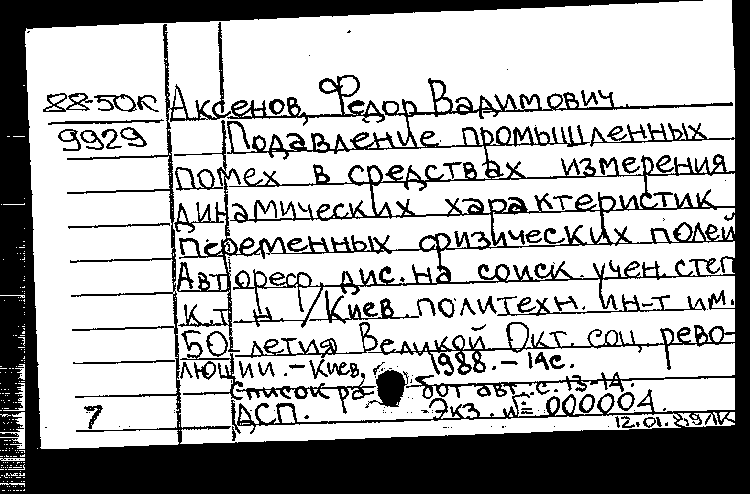 88-50к Аксенов, Федор Вадимович.
9929 Подавление промышленных
помех в средствах измерения
динамических характеристик
переменных физических полей
Автореф. дис. на соиск. учен. степ
к. т. н. /Киев. политехн. ин-т им.
50-летия Великой Окт. соц. рево-
люции. - Киев, 1988. - 14с.
Список работ авт. с. 13-14.
7 ДСП. Экз. № 000004.
12.01.89ЛК